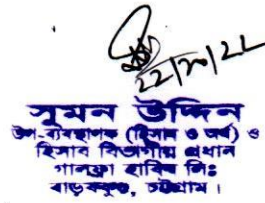 ২২/১০/২২
সুমন উদ্দিন
উপ-ব্যবস্থাপক (হিসাব ও অর্থ) ও
হিসাব বিভাগীয় প্রধান
গালফ্রা হাবিব লিঃ
বাড়বকুণ্ড, চট্টগ্রাম।